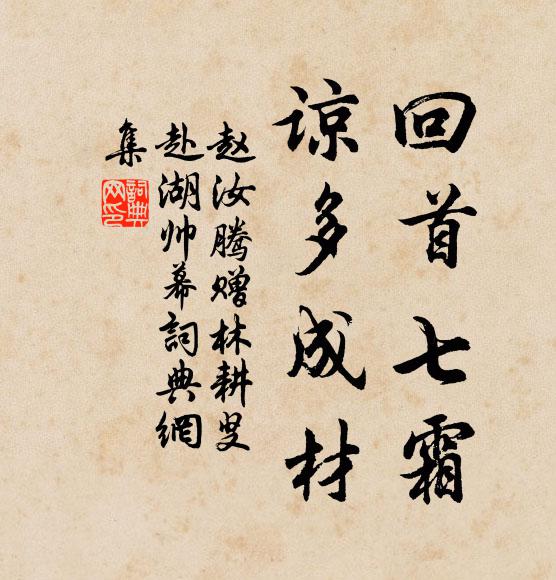 回首七霜
谅多成材
赵汝腾赠林耕叟
赴湖帅幕詞典網
集
詞典
网印